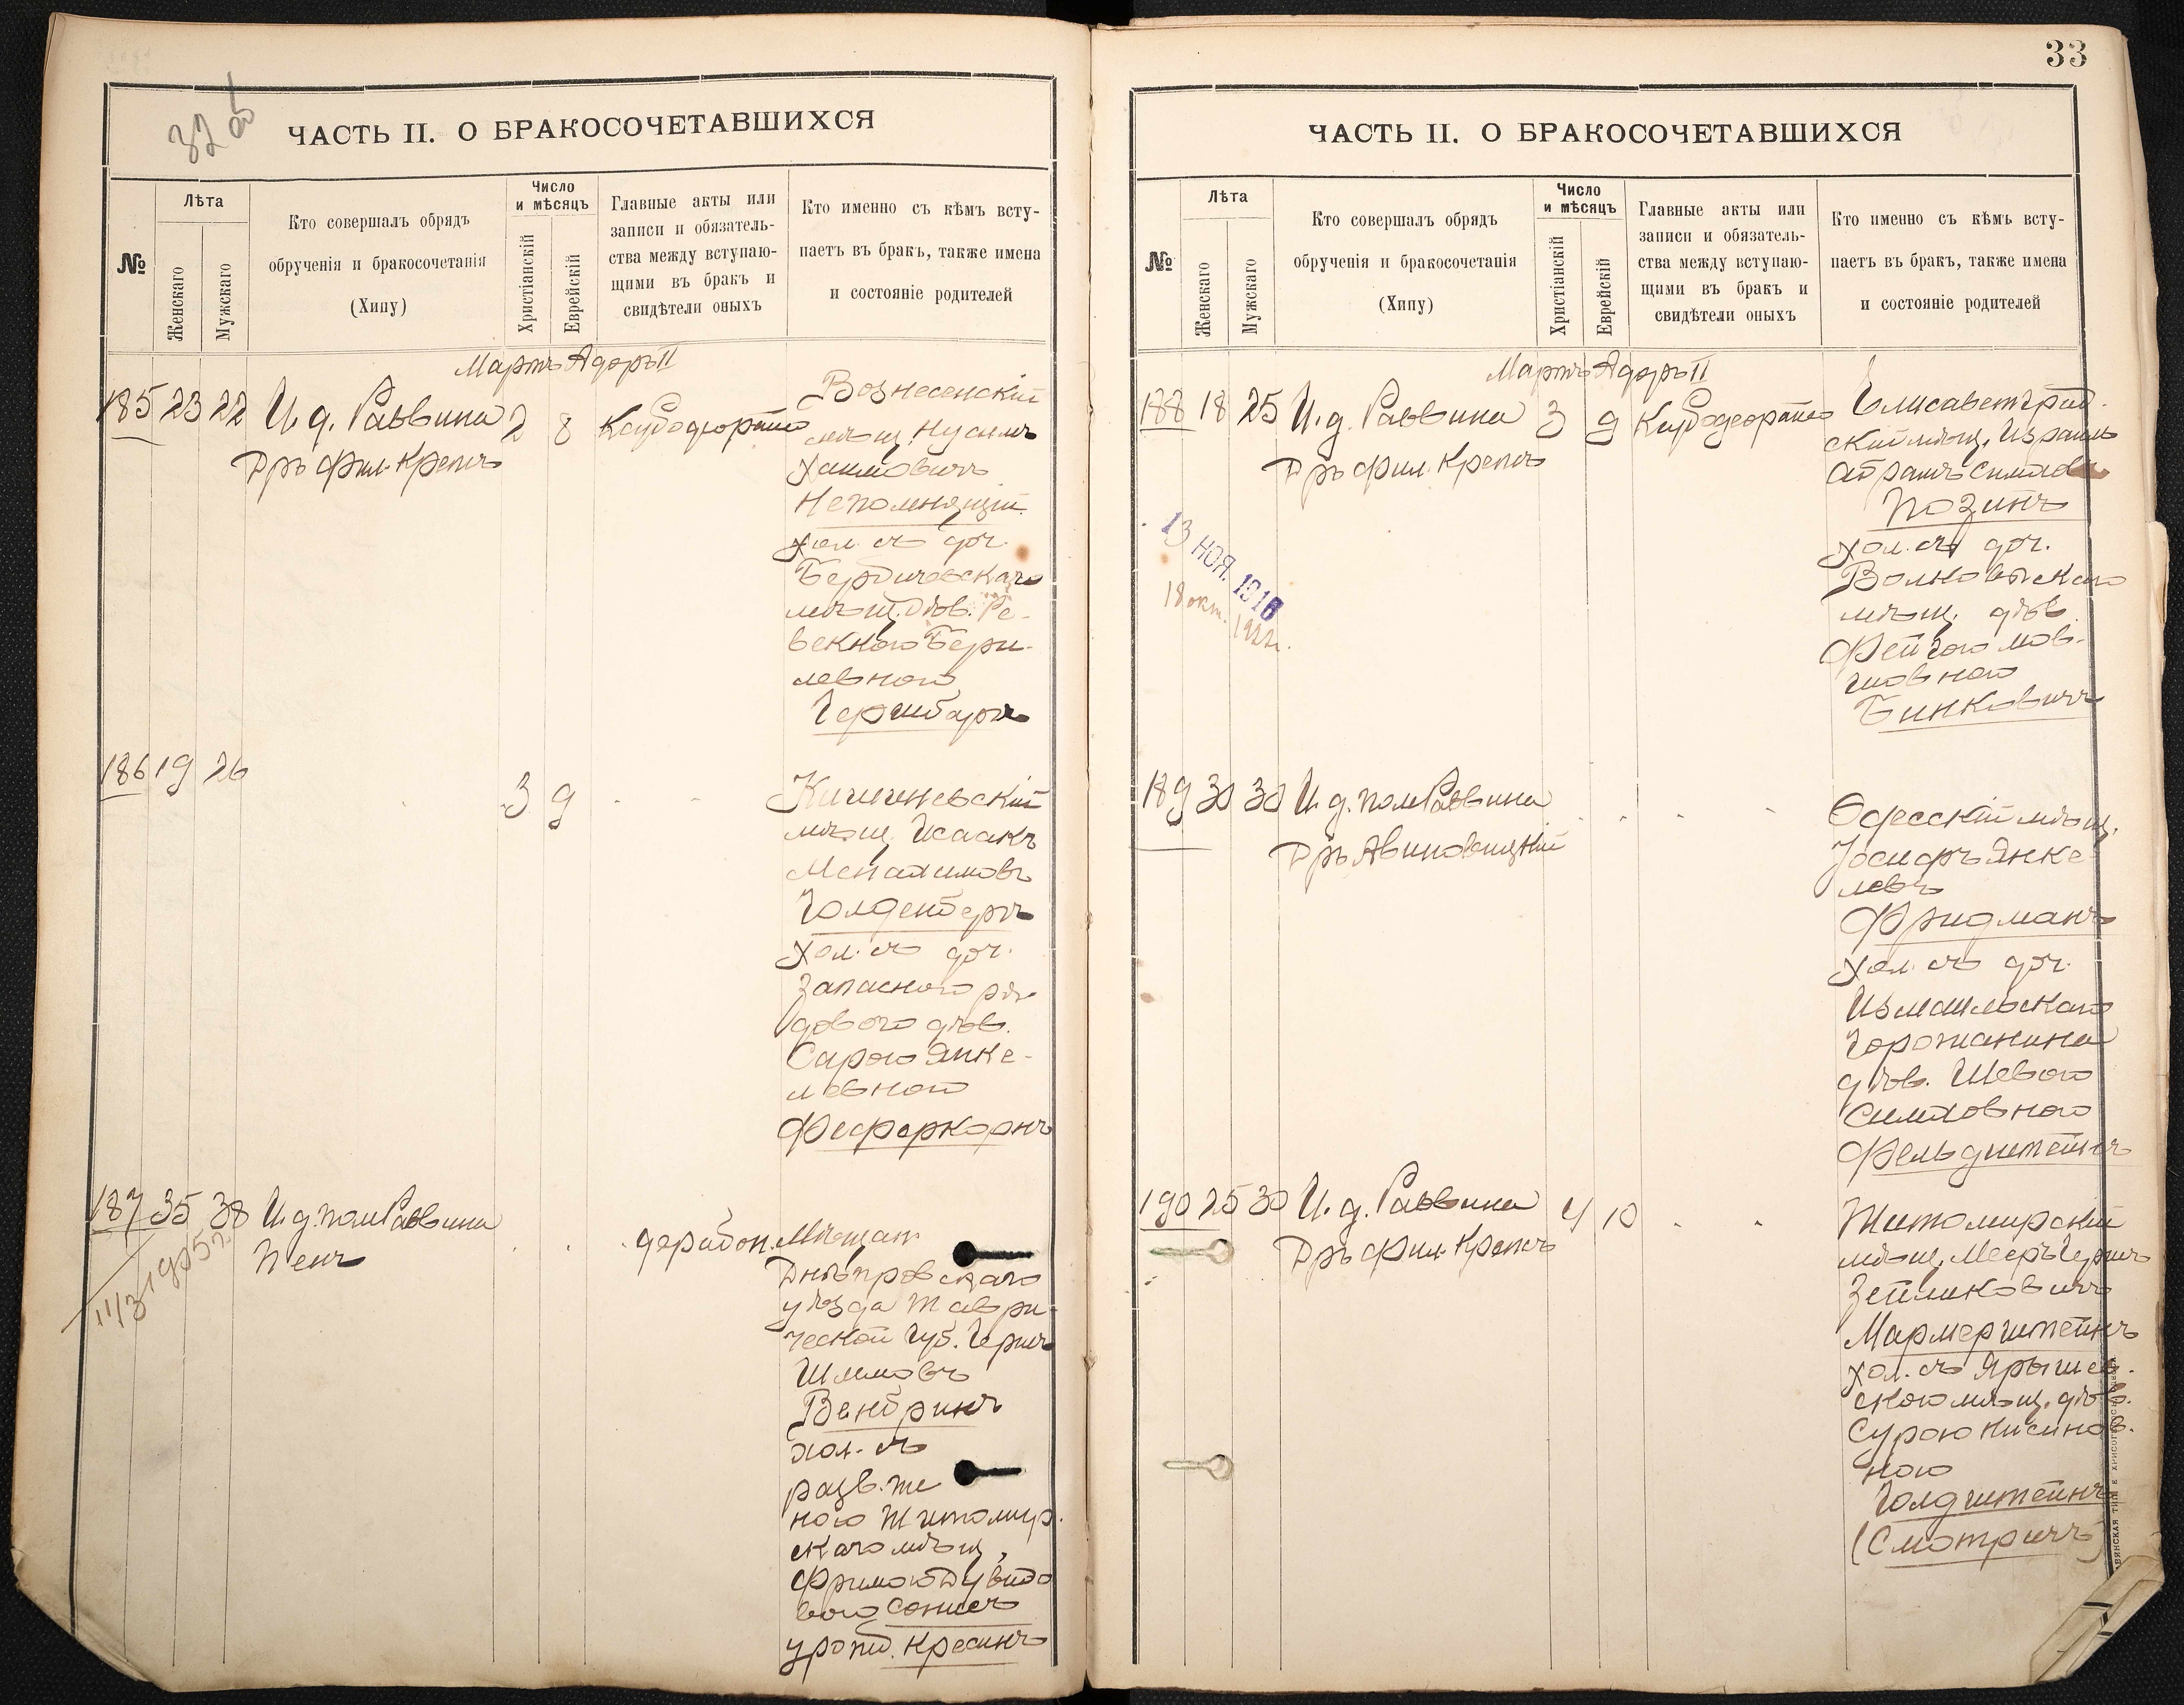 32 об
ЧАСТЬ II. О БРАКОСОЧЕТАВШИХСЯ
№
Лѣта
Женскаго
Мужскаго
Кто совершалъ обрядъ
обрученія и бракосочетанія
(Хипу)
Число
и мѣсяцъ
Христіанскій
Еврейскій
Главные акты или
записи и обязатель-
ства между вступаю-
щими въ бракъ и
свидѣтели оныхъ
Кто именно съ кѣмъ всту-
паетъ въ бракъ, также имена
и состояніе родителей
Мартъ Адаръ II
185 23 22 И. д. Раввина 2 8
Дръ Фил. Крепсъ
Вознесенскій
мѣщ. Нусимъ
Хаимовичъ
Непомнящій
хол. съ доч.
Бердичевскаго
мѣщ. дѣв. Ре-
веккою Бери-
левною
Гершбаръ
186 19 26 3 9
Кишиневскій
мѣщ. Исаакъ
Менахимовъ
Голденбергъ
хол. съ доч.
Запаснаго ря-
дового дѣв.
Сарою Янке-
левною
Фефаркорнъ
187 35 38 И. д. пом Раввина
Пенъ
11/3 1905 г.
Мѣщан.
Днѣпровскаго
уѣзда Таври-
ческой Губ. Гершъ
Шлимовъ
Венбринъ
хол. съ
разв. же
ною Житомир.
скаго мѣщ.
Фримою Дувидо
вою Сонисъ
урожд. Кресинъ
33
ЧАСТЬ II. О БРАКОСОЧЕТАВШИХСЯ
№
Лѣта
Женскаго
Мужскаго
Кто совершалъ обрядъ
обрученія и бракосочетанія
(Хипу)
Число
и мѣсяцъ
Христіанскій
Еврейскій
Главные акты или
записи и обязатель-
ства между вступаю-
щими въ бракъ и
свидѣтели оныхъ
Кто именно съ кѣмъ всту-
паетъ въ бракъ, также имена
и состояніе родителей
Мартъ Адаръ II
188 18 25 И. д. Раввина 3 9
Дръ Фил. Крепсъ
13 НОЯ. 1916
18 окт. 1922 г.
Елисаветград-
скій мѣщ. Израиль
Абрамъ Симхов
Позинъ
хол. съ доч.
Волковыскаго
мѣщ. дѣв.
Фейгою Мов-
шовною
Бинковичъ
189 30 30 И. д. пом Раввина
Дръ Авиновицкій
Одесскій мѣщ.
Іосифъ Янке
левъ
Фридманъ
хол. съ доч.
Измаильскаго
Горожанина
дѣв. Шевою
Симховною
Фельдштейнъ
190 25 30 И. д. Раввина 4 10
Дръ Фил. Крепсъ
Житомирскій
мѣщ. Мееръ Гершъ
Зейликовичъ
Мармерштейнъ
хол. съ Ярышев.
скою мѣщ. дѣв.
Сурою Нисинов.
ною
Голдштейнъ
(Смотричъ)